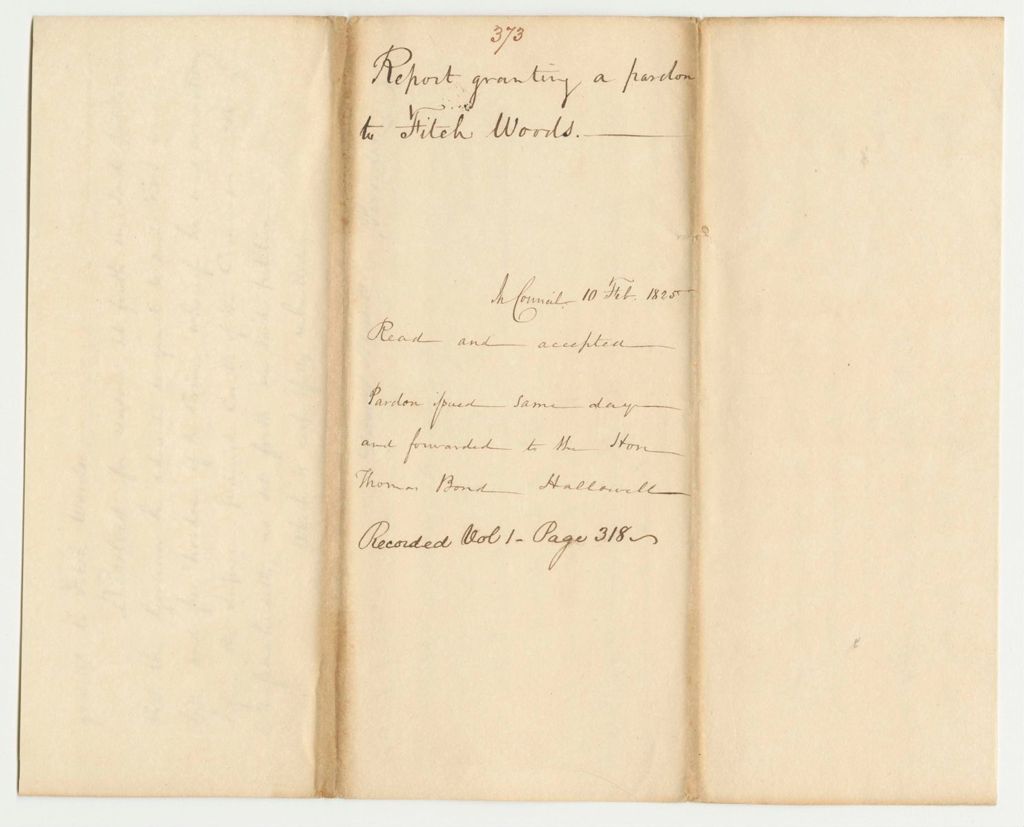 373
Report granting a pardon
to Fitch Woods.
In Council 10 Feb. 1825
Read and accepted
Pardon issued same day
and forwarded to the Hon
Thomas Bond Hallowell
Recorded Vol 1 - Page 318